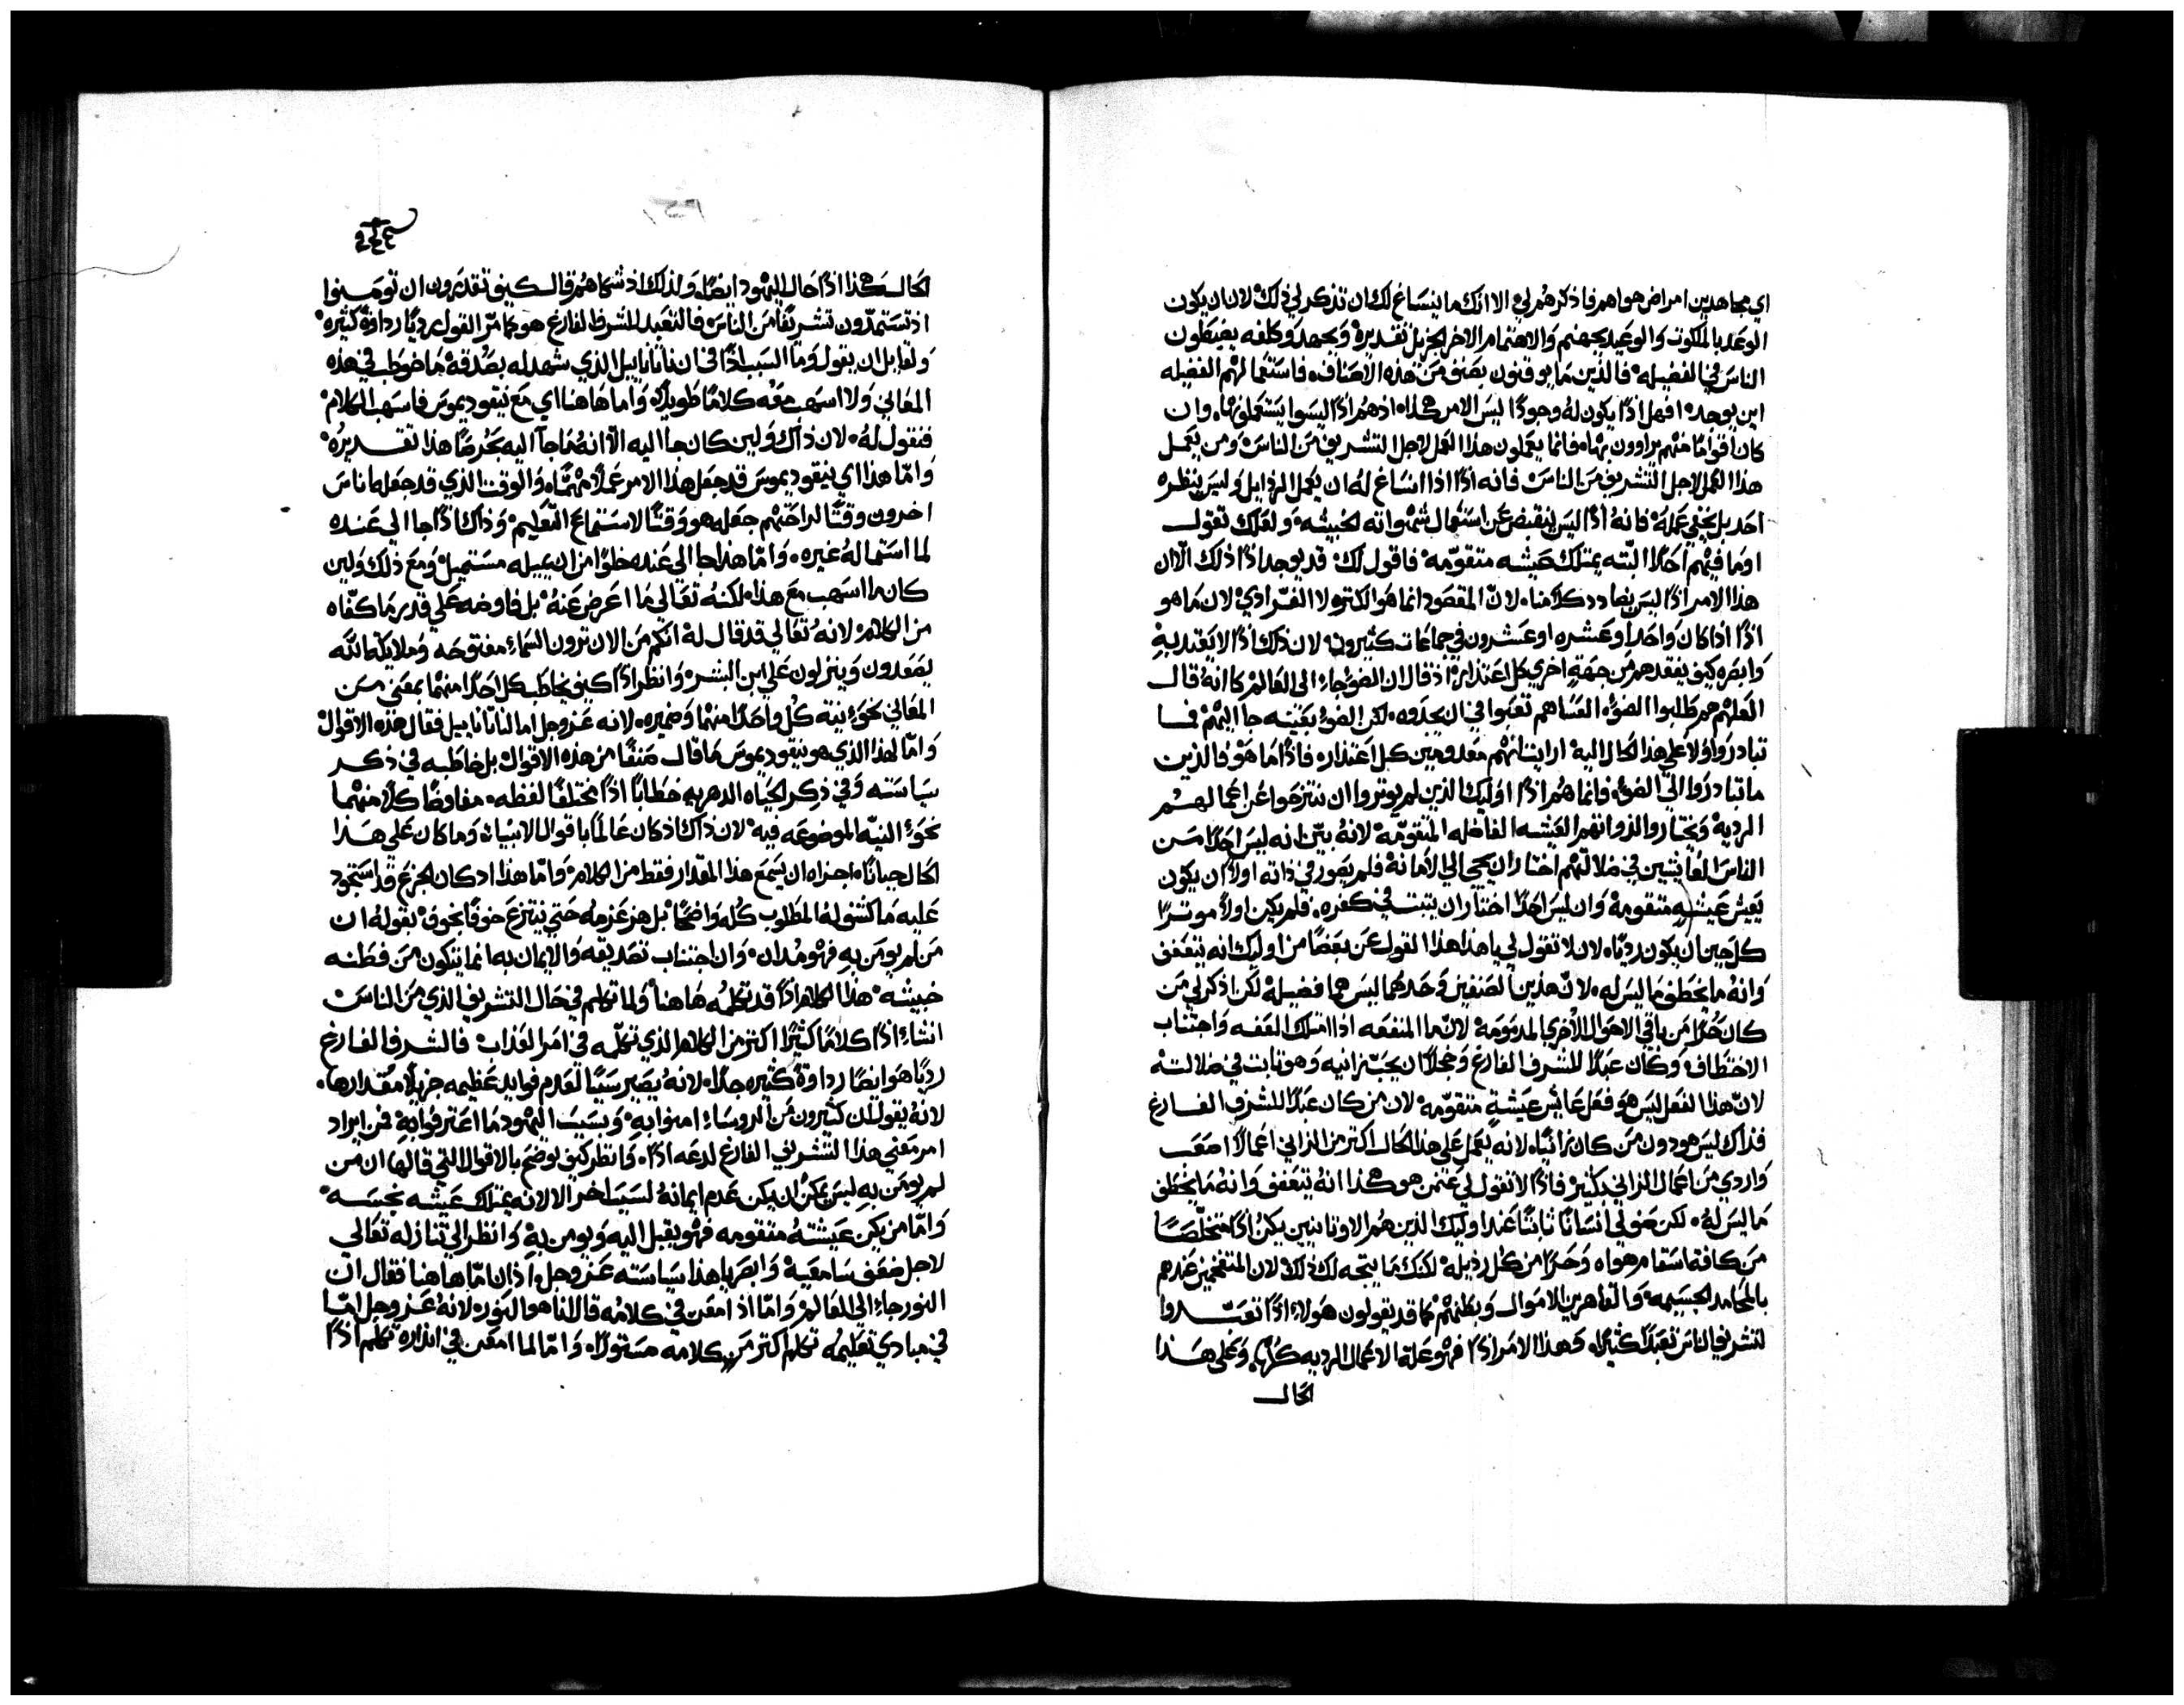 اي مجاهدين امراض هواهم فاذكرهم لي الا انك ما ينساغ لك ان تذكر لي ذلك لان ان يكون
الوعد بالملكوت والوعيد بجهنم والاهتمام الاخر الجزيل تقديره وبجهد وكلفه يضبطون
الناس في الفضيله فالذين ما يوقنون بصنف من هذه الاصناف فاستعمالهم الفضيله
اين يوجد افهل اذًا يكون له وجودًا ليس الامر هكذا اذ هم اذًا ليسوا يستعملونها وان
كان اقوامًا منهم يراوون بها فانما يعملون هذا العمل لاجل التشريف من الناس ومن يعمل
هذا العمل لاجل التشريف من الناس فانه اذًا اذا انساغ له ان يعمل الرذايل وليس ينظره
احد بل يخفي عمله فانه اذًا ليس ينقبض عن استعمال شهواته الخبيثه ولعلك تقول
اوما فيهم احدًا البته يمتلك عيشه متقومه فاقول لك قد يوجد اذًا ذلك الا ان
هذا الامر اذًا ليس يضادد كلامنا لان المقصود انما هو الكثره لا الفرادي لان ما هو
اذًا اذا كان واحد او عشره او عشرون في جماعات كثيرون لان ذلك اذًا لا يعتد به
وابصره كيف يفقدهم من جهةٍ اخري كل اعتذار اذ قال ان الضوء جاء الى العالم كانه قال
العلهم هم طلبوا الضوء العساهم تعبوا في ان يجدوه لكن الضوء بعينه جا اليهم فما
تبادروا ولا على هذا الحال اليه ارايت انهم معدومين كل اعتذاره فاذًا ما هو فالذين
ما تبادروا الي الضوء فانما هم اذًا اوليك الذين لم يوثروا ان ينتزحوا عن اعمالهم
الرديه ويختاروا لذواتهم العيشه الفاضله المتقومه لانه بين انه ليس احدًا من
الناس العايشين في ضلالتهم اختار ان يجي الي الامانه فلم يصور في ذاته اولاً ان يكون
يعيش عيشه متقومه وان ليس احدًا اختار ان يثبت في كفره فلم يكن اولاً موثرًا
كل حين ان يكون رديًا لان لا تقول لي يا هذا هذا القول عن بعضًا من اوليك انه يتعفف
وانه ما يخطف ما ليس له لان هذين الصنفين وحدهما ليس هما فضيله لكن اذكر لي من
كان حرًا من باقي الاهوال الاخري المذمومه لان ما المنفعه اذا امتلك العفه واجتناب
الاختطاف وكان عبدًا للشرف الفارغ وخجلاً ان يجب زانيه وهو ثابت في ضلالته
لان هذا الفعل ليس هو فعل عايش عيشةٍ متقومه لان من كان عبدًا للشرف الفارغ
فذاك ليس هو دون من كان زانيًا لانه يعمل علي هذا الحال اكثر من الزاني اعمالاً اصعب
واردي من اعمال الزاني بكثير فاذًا لا تقول لي عن من هو هكذا انه يتعفف وانه ما يخطف
ما ليس له لكن صف لي انسانًا ثابتًا عند اوليك الذين هم الاوثانيين يكن اذًا متخلصًا
من كافة اسقام هواه وحرًا من كل رذيله لكنك ما يتجه لك ذلك لان المتفخمين عندهم
بالمحامد الجسيمه والقاهرين الاموال وبطنهم كما قد يقولون هولاء اذًا تعبدوا
لتشريف الناس تعبدًا كثيرًا وهذا الامر اذًا فهو علة الاعمال الرديه كلها وعلى هذا
الحال
الحال هكذا اذًا حال اليهود ايضًا ولذلك اذ شكاهم قال كيف تقدرون ان تومنوا
اذ تستمدون تشريفًا من الناس فالتعبد للشرف الفارغ هو كما مر القول رديًا رداوةً كثيره
ولقايل ان يقول وما السبب اذًا في ان ناتانائيل الذي شهد له بصدقه ما خوطب في هذه
المعاني ولا اسهب معه كلامًا طويلاً واما هاهنا اي مع نيقوديموس فاسهب الكلام
فنقول له لان ذاك ولين كان جا اليه الا انه ما جآ اليه بحرصًا هذا تقديره
وامّا هذا اي نيقوديموس قد جعل هذا الامر عملاً مهمًا والوقت الذي قد جعله اناس
اخرون وقتًا لراحتهم جعله هو وقتًا لاستماع التعليم وذاك اذًا جا الي عنده
لما استماله غيره وامّا هذا جا الى عنده خلوًا من ان يميله مستميل ومع ذلك ولين
كان ما اسهب مع هذا لكنه تعالي ما اعرض عنه بل فاوضه علي قدر ما كفاه
من الكلام لانه تعالي قد قال له انكم من الان ترون السماء مفتوحه وملايكة الله
يصعدون وينزلون علي ابن البشر وانظر اذًا كيف يخاطب كل احدًا منهما بمعني من
المعاني نحو نية كل واحدًا منهما وضميره لانه عز وجل اما لناتانائيل فقال هذه الاقوال
وامّا لهذا الذي هو نيقوديموس ما قال صنفًا من هذه الاقوال بل خاطبه في ذكر
سياسته وفي ذكر الحياه الدهريه خطابًا اذًا مختلفًا لفظه مفاوضًا كلاً منهما
نحو النيّه الموضوعه فيه لان ذاك اذ كان عالمًا باقوال الانبياء وما كان علي هذا
الحال جبانًا اجزاه ان يسمع هذا المقدار فقط من الكلام وامّا هذا اذ كان الجزع قد استحوذ
عليه ما كشف له المطلوب كله واضحًا بل هز عزمه حتي ينتزع خوفًا بخوف بقوله ان
من لم يومن به فهو مدان وان اجتناب تصديقه والايمان به انما يتكون من فطنه
خبيثه هذا الكلام اذًا قد تكلمه هاهنا ولما تكلم في حال التشريف الذي من الناس
انشاء اذًا كلامًا كثيرًا اكثر من الكلام الذي تكلمه في امر العذاب فالشرف الفارغ
رديًا هو ايضًا رداوةً كثيره جدًا لانه يصير سببًا لعدم فوايد عظيمه جزيلاً مقدارها
لانه يقول ان كثيرون من الروساء امنوا به وبسبب اليهود ما اعترفوا به فمن ايراد
امر معني هذا التشريف الفارغ لدعه اذًا وانظر كيف يوضح بالاقوال التي قالها ان من
لم يومن به ليس يمكن ان يكن عدم ايمانه لسببًا اخر الا لانه يمتلك عيشه نجسه
وامّا من يكن عيشته متقومه فهو يقبل اليه ويومن به وانظر الي تنازله تعالي
لاجل ضعف سامعيه وابصر يا هذا سياسته عز وجل اذ ان امّا هاهنا فقال ان
النور جاء الى العالم وامّا اذ امعن في كلامه قال انا هو النور لانه عز وجل امّا
في مبادي تعليمه تكلم اكثر من كلامه مستورًا وامّا لما امعن في انذاره تكلم اذًا